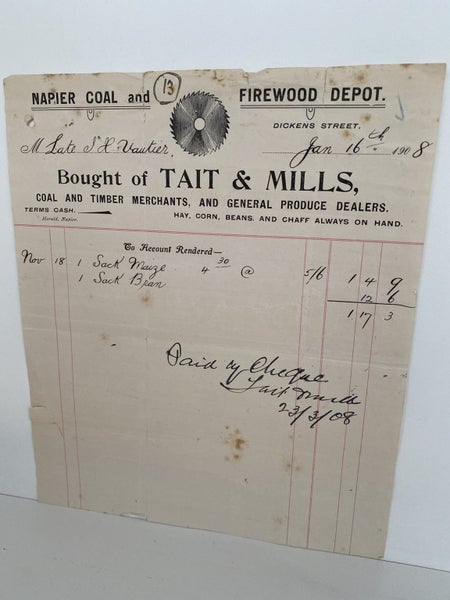 13
NAPIER COAL and FIREWOOD DEPOT.
DICKENS STREET.
M Late S H Vautier, Jan 16th 1908
Bought of TAIT & MILLS,
COAL AND TIMBER MERCHANTS, AND GENERAL PRODUCE DEALERS.
TERMS CASH. HAY, CORN, BEANS, AND CHAFF ALWAYS ON HAND.
Herald, Napier.
To Account Rendered—
Nov 18 1 Sack Maize 4 30 @ 5/6 1 4 9
1 Sack Bran 12 6
1 17 3
Paid by Cheque
Tait & Mills
23/3/08